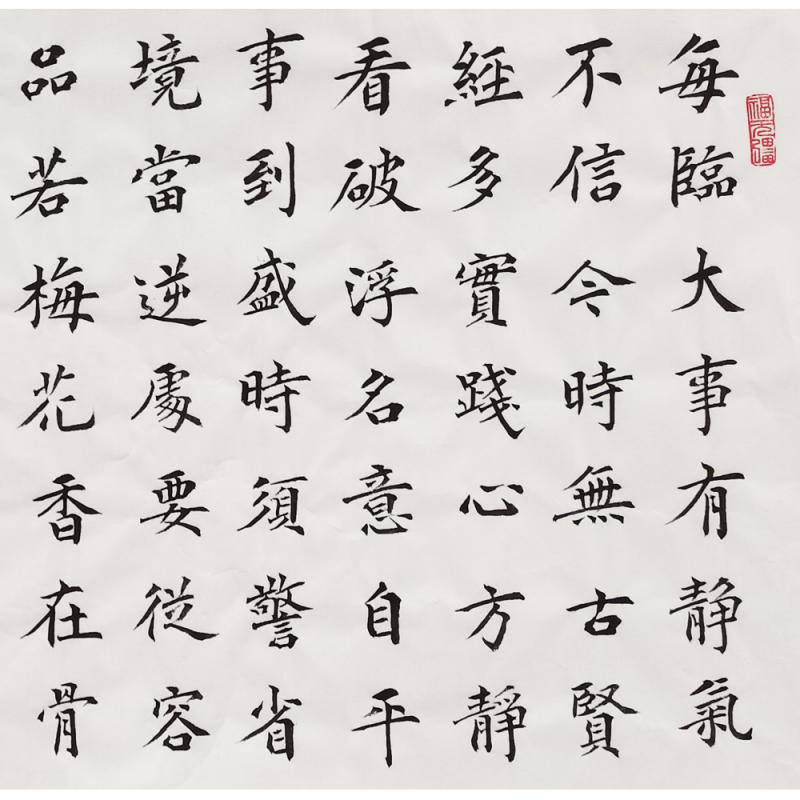 每臨大事有静氣
不信今時無古賢
經多實踐心方靜
看破浮名意自平
事到盛時須警省
境當逆處要從容
品若梅花香在骨
福無疆